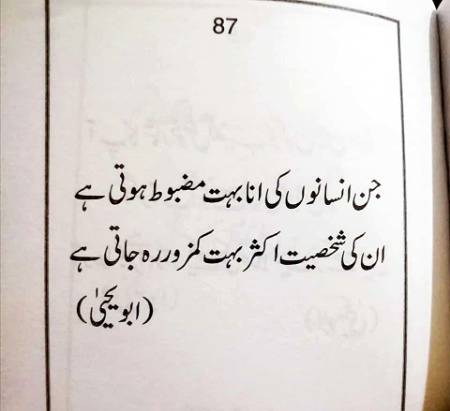 87
جن انسانوں کی انا بہت مضبوط ہوتی ہے
ان کی شخصیت اکثر بہت کمزور رہ جاتی ہے
(ابو یحییٰ)